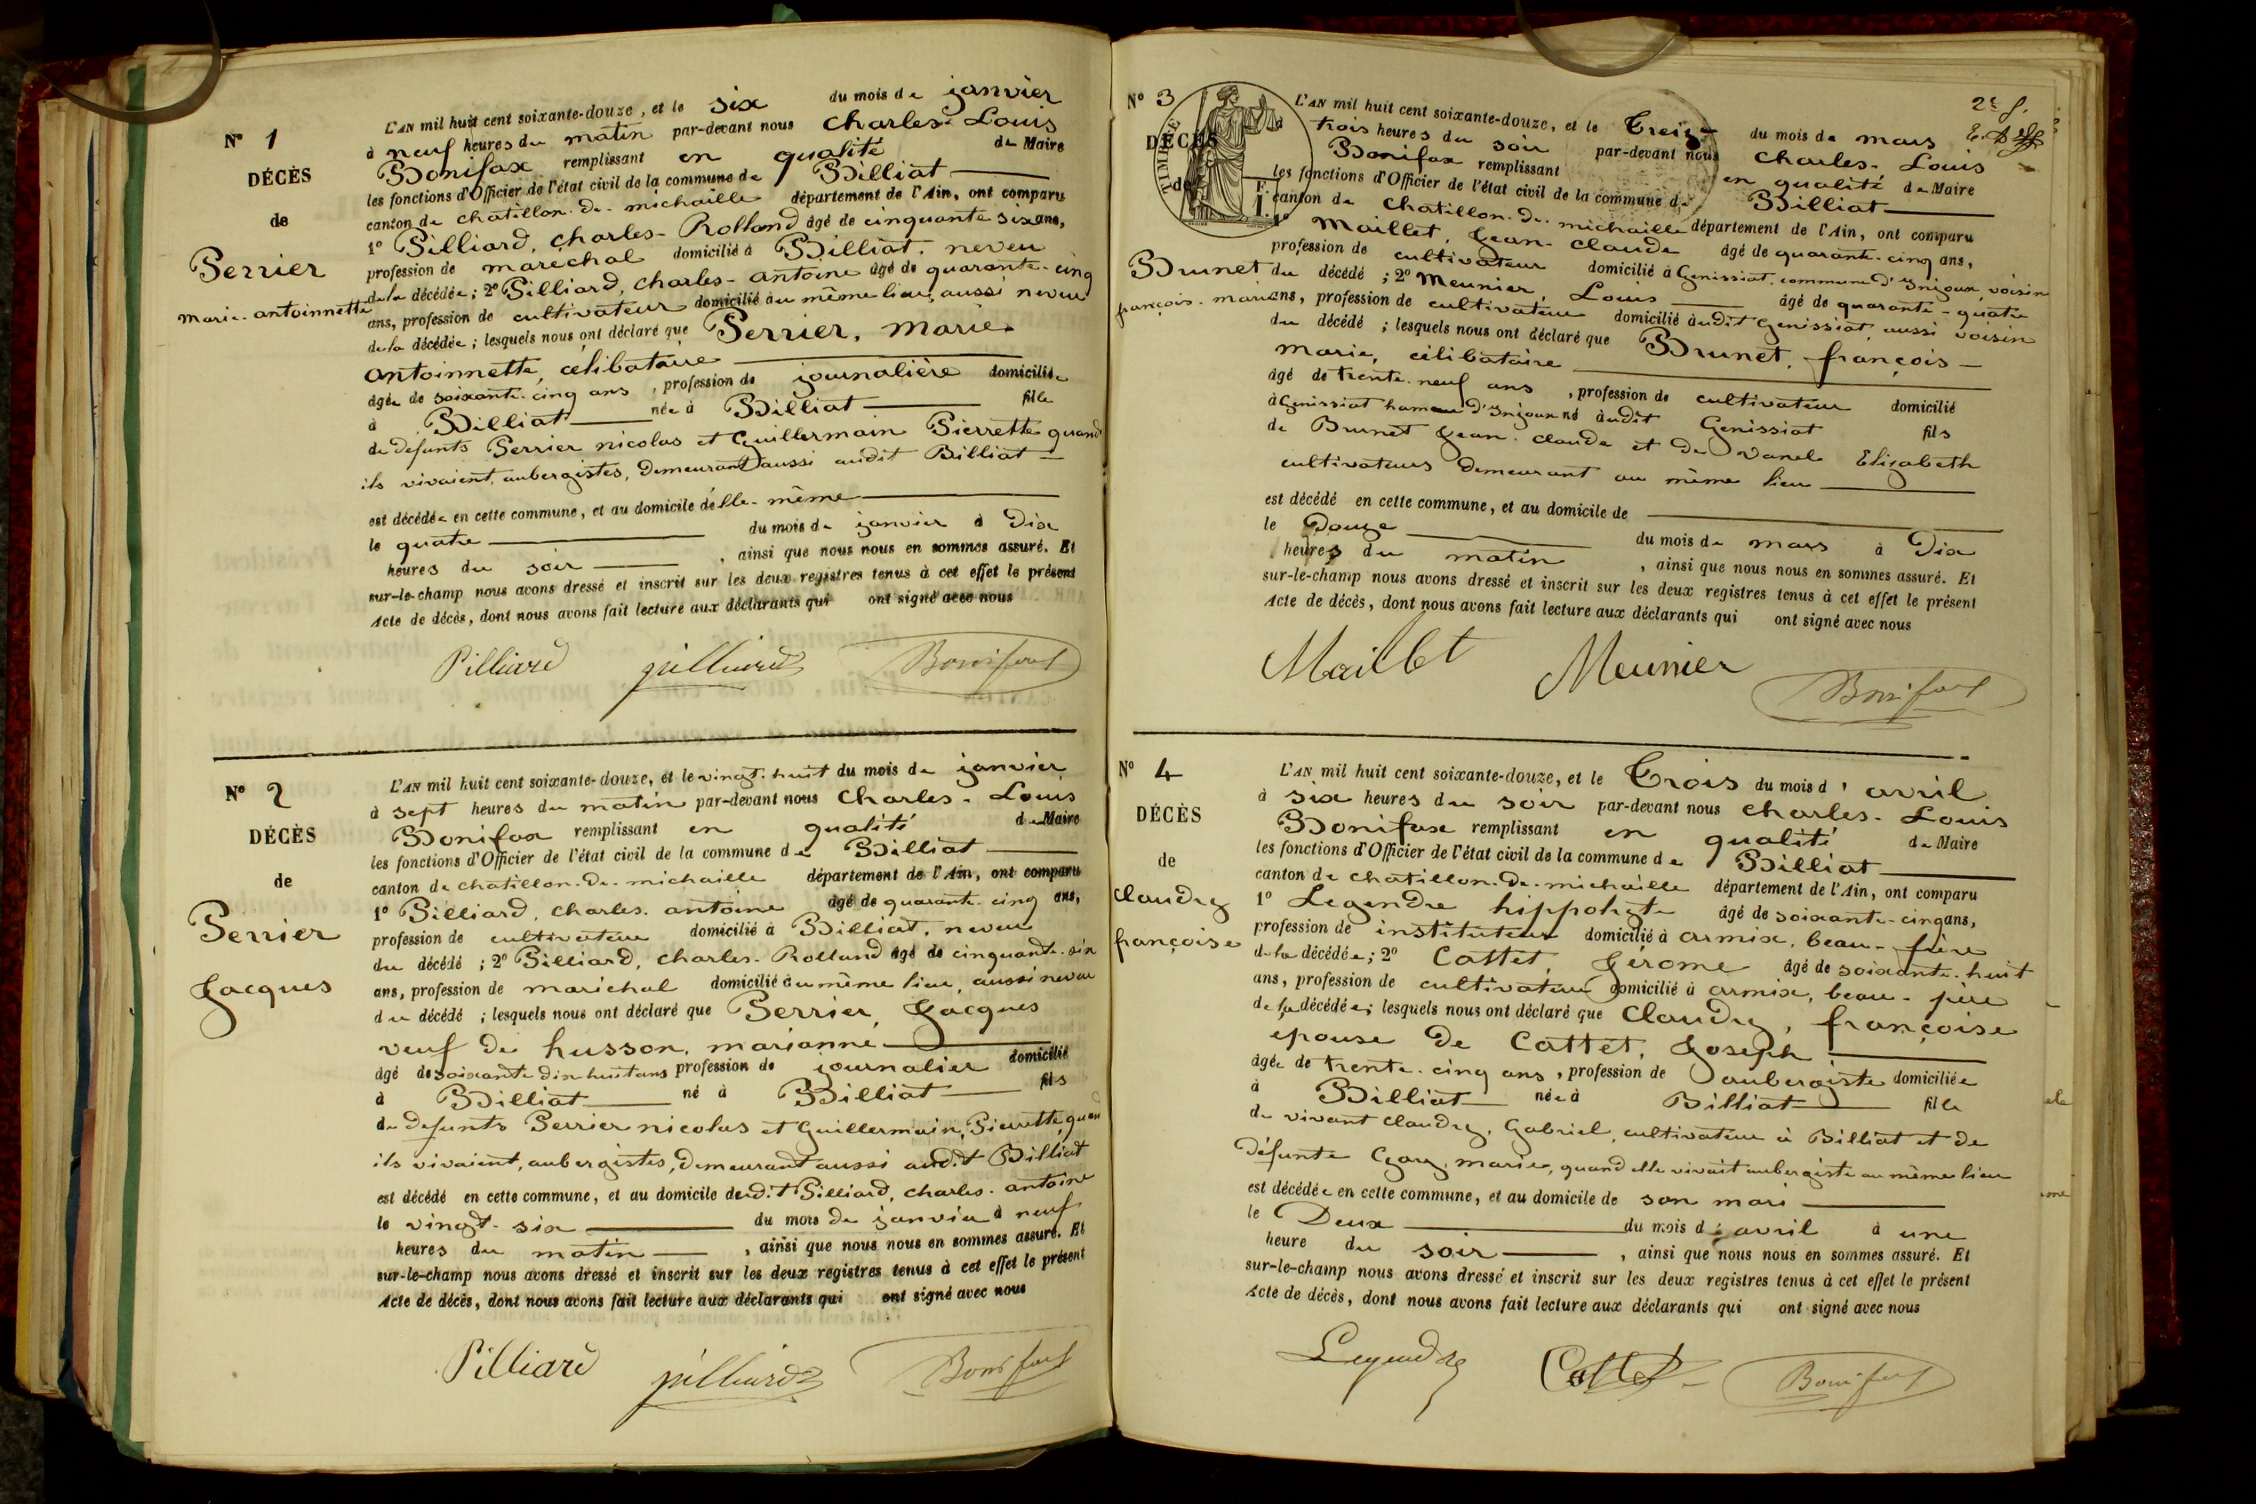 N° 1
DÉCÈS
de
Perrier
Marie-antoinnette
L'AN mil huit cent soixante-douze, et le six du mois de janvier
à neuf heures du matin par-devant nous Charles-Louis
Bonifax remplissant en qualité de Maire
les fonctions d'Officier de l'état civil de la commune de Billiat
canton de chatillon-de-michaille département de l'Ain, ont comparu
1° Pilliard, Charles-Rolland âgé de cinquante six ans,
profession de maréchal domicilié à Billiat, neveu
de la décédée; 2° Pilliard, Charles-antoine âgé de quarante-cinq
ans, profession de cultivateur domicilié au même lieu, aussi neveu
de la décédée; lesquels nous ont déclaré que Perrier, Marie
antoinnette, célibataire
âgée de soixante-cinq ans, profession de journalière domiciliée
à Billiat née à Billiat fille
de defunts Perrier nicolas et Guillermain Pierrette quand
ils vivaient, aubergistes, demeurant aussi audit Billiat
est décédée en cette commune, et au domicile d'elle-même
le quatre du mois de janvier à Dix
heures du soir, ainsi que nous nous en sommes assuré. Et
sur-le-champ nous avons dressé et inscrit sur les deux registres tenus à cet effet le présent
Acte de décès, dont nous avons fait lecture aux déclarants qui ont signé avec nous
Pilliard pilliard Bonifax
N° 2
DÉCÈS
de
Perrier
Jacques
L'AN mil huit cent soixante-douze, et le vingt-huit du mois de janvier
à sept heures du matin par-devant nous Charles-Louis
Bonifax remplissant en qualité de Maire
les fonctions d'Officier de l'état civil de la commune de Billiat
canton de chatillon-de-michaille département de l'Ain, ont comparu
1° Pilliard, Charles-antoine âgé de quarante-cinq ans,
profession de cultivateur domicilié à Billiat, neveu
du décédé; 2° Pilliard, Charles-Rolland âgé de cinquante-six
ans, profession de maréchal domicilié au même lieu, aussi neveu
du décédé; lesquels nous ont déclaré que Perrier, Jacques
veuf de husson, marianne
âgé de soixante dix huit ans profession de journalier domicilié
à Billiat né à Billiat fils
de defunts Perrier nicolas et Guillermain, Pierrette, quand
ils vivaient, aubergistes, demeurant aussi audit Billiat
est décédé en cette commune, et au domicile dudit Pilliard, Charles-antoine
le vingt-six du mois de janvier à neuf
heures du matin, ainsi que nous nous en sommes assuré. Et
sur-le-champ nous avons dressé et inscrit sur les deux registres tenus à cet effet le présent
Acte de décès, dont nous avons fait lecture aux déclarants qui ont signé avec nous
Pilliard pilliard Bonifax
2e f.
N° 3
TIMBRE
DÉCÈS
de
Brunet
françois-marie
L'AN mil huit cent soixante-douze, et le Treize du mois de mars
à trois heures du soir par-devant nous Charles-Louis
Bonifax remplissant en qualité de Maire
les fonctions d'Officier de l'état civil de la commune de Billiat
canton de Chatillon-de-michaille département de l'Ain, ont comparu
1° Maillet, Jean-Claude âgé de quarante-cinq ans,
profession de cultivateur domicilié à Genissiat, commune d'Injoux, voisin
du décédé; 2° Meunier, Louis âgé de quarante-quatre
ans, profession de cultivateur domicilié audit Genissiat, aussi voisin
du décédé; lesquels nous ont déclaré que Brunet, françois-
marie, célibataire
âgé de trente-neuf ans, profession de cultivateur domicilié
à Genissiat hameau d'Injoux né audit Genissiat fils
de Brunet Jean-Claude et de Vanel Elizabeth
cultivateurs demeurant au même lieu
est décédé en cette commune, et au domicile de
le Douze du mois de mars à Dix
heures du matin, ainsi que nous nous en sommes assuré. Et
sur-le-champ nous avons dressé et inscrit sur les deux registres tenus à cet effet le présent
Acte de décès, dont nous avons fait lecture aux déclarants qui ont signé avec nous
Maillet Meunier Bonifax
N° 4
DÉCÈS
de
Claudry
françoise
L'AN mil huit cent soixante-douze, et le Trois du mois d'avril
à six heures du soir par-devant nous Charles-Louis
Bonifax remplissant en qualité de Maire
les fonctions d'Officier de l'état civil de la commune de Billiat
canton de chatillon-de-michaille département de l'Ain, ont comparu
1° Legendre hippolyte âgé de soixante-cinq ans,
profession de instituteur domicilié à armix, beau-frère
de la décédée; 2° Cattet, Gérome âgé de soixante-huit
ans, profession de cultivateur domicilié à armix, beau-père
de la décédée; lesquels nous ont déclaré que Claudry, françoise
epouse de Cattet, Joseph
âgée de trente-cinq ans, profession de aubergiste domiciliée
à Billiat née à Billiat fille
de vivant Claudry, Gabriel, cultivateur à Billiat et de
défunte marie, quand elle vivait aubergiste au même lieu
est décédée en cette commune, et au domicile de son mari
le Deux du mois d'avril à une
heure du soir, ainsi que nous nous en sommes assuré. Et
sur-le-champ nous avons dressé et inscrit sur les deux registres tenus à cet effet le présent
Acte de décès, dont nous avons fait lecture aux déclarants qui ont signé avec nous
Legendre Cattet Bonifax